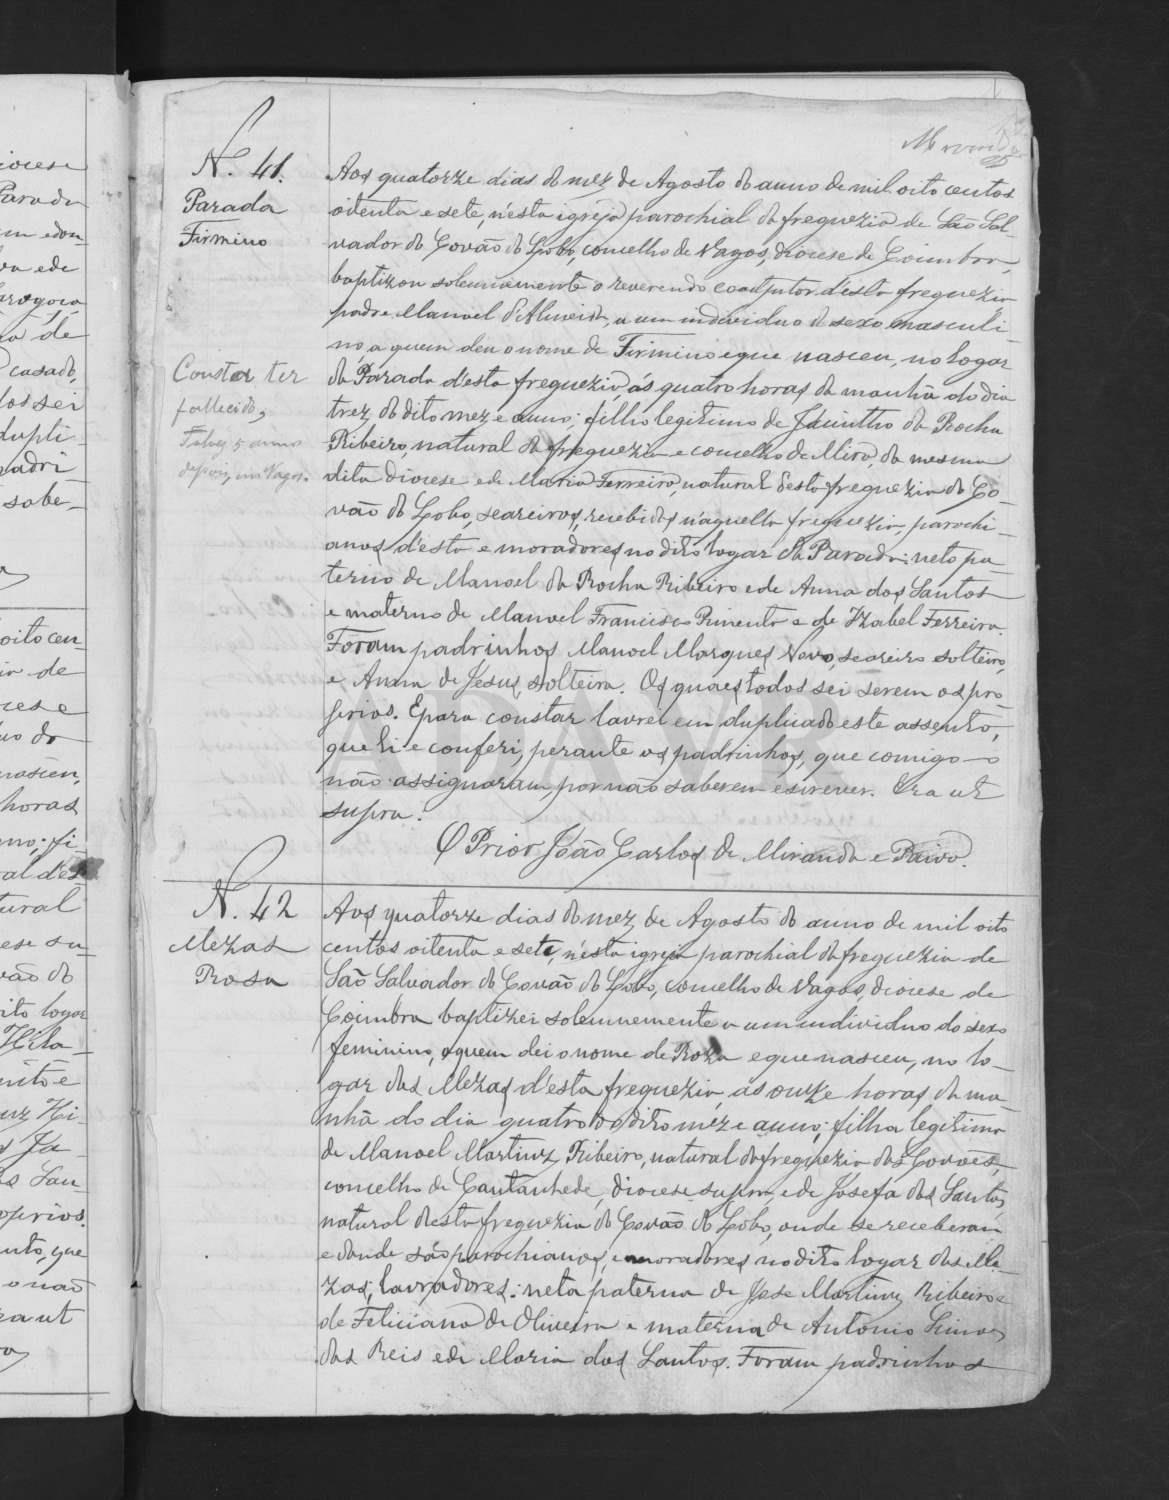 Miranda
N. 41.
Parada
Firmino
Consta ter
fallecido,
Talvez 5 annos
depois, em Vagos.
Aos quatorze dias do mez de Agosto do anno de mil oito centos
oitenta e sete, n'esta igreja parochial da freguezia de São Sal-
vador do Covão do Lobo, concelho de Vagos, diocese de Coimbra,
baptizou solemnemente o reverendo coadjutor d'esta freguezia
padre Manoel d'Almeida, a um individuo do sexo masculi-
no, a quem deu o nome de Firmino e que nasceu, no logar
da Parada d'esta freguezia, ás quatro horas da manhã do dia
trez do dito mez e anno; filho legitimo de Jacintho da Rocha
Ribeiro, natural da freguezia e concelho de Mira, da mesma
dita diocese e de Maria Ferreira, natural d'esta freguezia do Co-
vão do Lobo, seareiros, recebidos n'aquella freguezia, parochi-
anos d'esta e moradores no dito logar da Parada: neto pa-
terno de Manoel da Rocha Ribeiro e de Anna dos Santos
e materno de Manoel Francisco Pimenta e de Izabel Ferreira.
Foram padrinhos Manoel Marques Novo, seareiro solteiro,
e Anna de Jesus, solteira. Os quaes todos sei serem os pro-
prios. E para constar lavrei em duplicado este assento,
que li e conferi, perante os padrinhos, que comigo o
não assignaram, por não saberem escrever. Era ut
supra.
O Prior João Carlos de Miranda e Paiva.
N. 42
Mezas
Rosa
Aos quatorze dias do mez de Agosto do anno de mil oito
centos oitenta e sete, n'esta igreja parochial da freguezia de
São Salvador do Covão do Lobo, concelho de Vagos, diocese de
Coimbra baptizei solemnemente a um individuo do sexo
feminino, a quem dei o nome de Roza e que nasceu, no lo-
gar das Mezas d'esta freguezia, ás onze horas da ma-
nhã do dia quatro do dito mez e anno; filha legitima
de Manoel Martins Ribeiro, natural da freguezia dos Covões,
concelho de Cantanhede, diocese supra, e de Josefa dos Santos,
natural d'esta freguezia do Covão do Lobo, onde se receberam
e d'onde são parochianos, e moradores no dito logar das Me-
zas; lavradores: neta paterna de José Martins Ribeiro e
de Feliciana de Oliveira e materna de Antonio Simões
dos Reis e de Maria dos Santos. Foram padrinhos